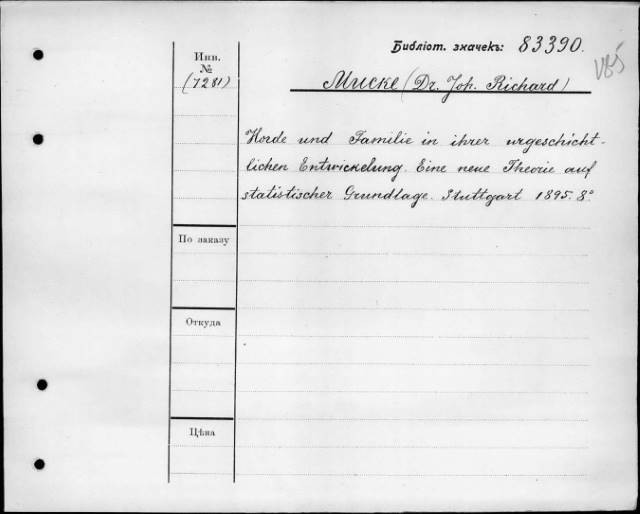 Библіот. значекъ: 83390.
Инв.
№
(7281)
Mucke (Dr. Joh. Richard)
Horde und Familie in ihrer urgeschicht-
lichen Entwickelung. Eine neue Theorie auf
statistischer Grundlage. Stuttgart 1895. 8°
По заказу
Откуда
Цѣна